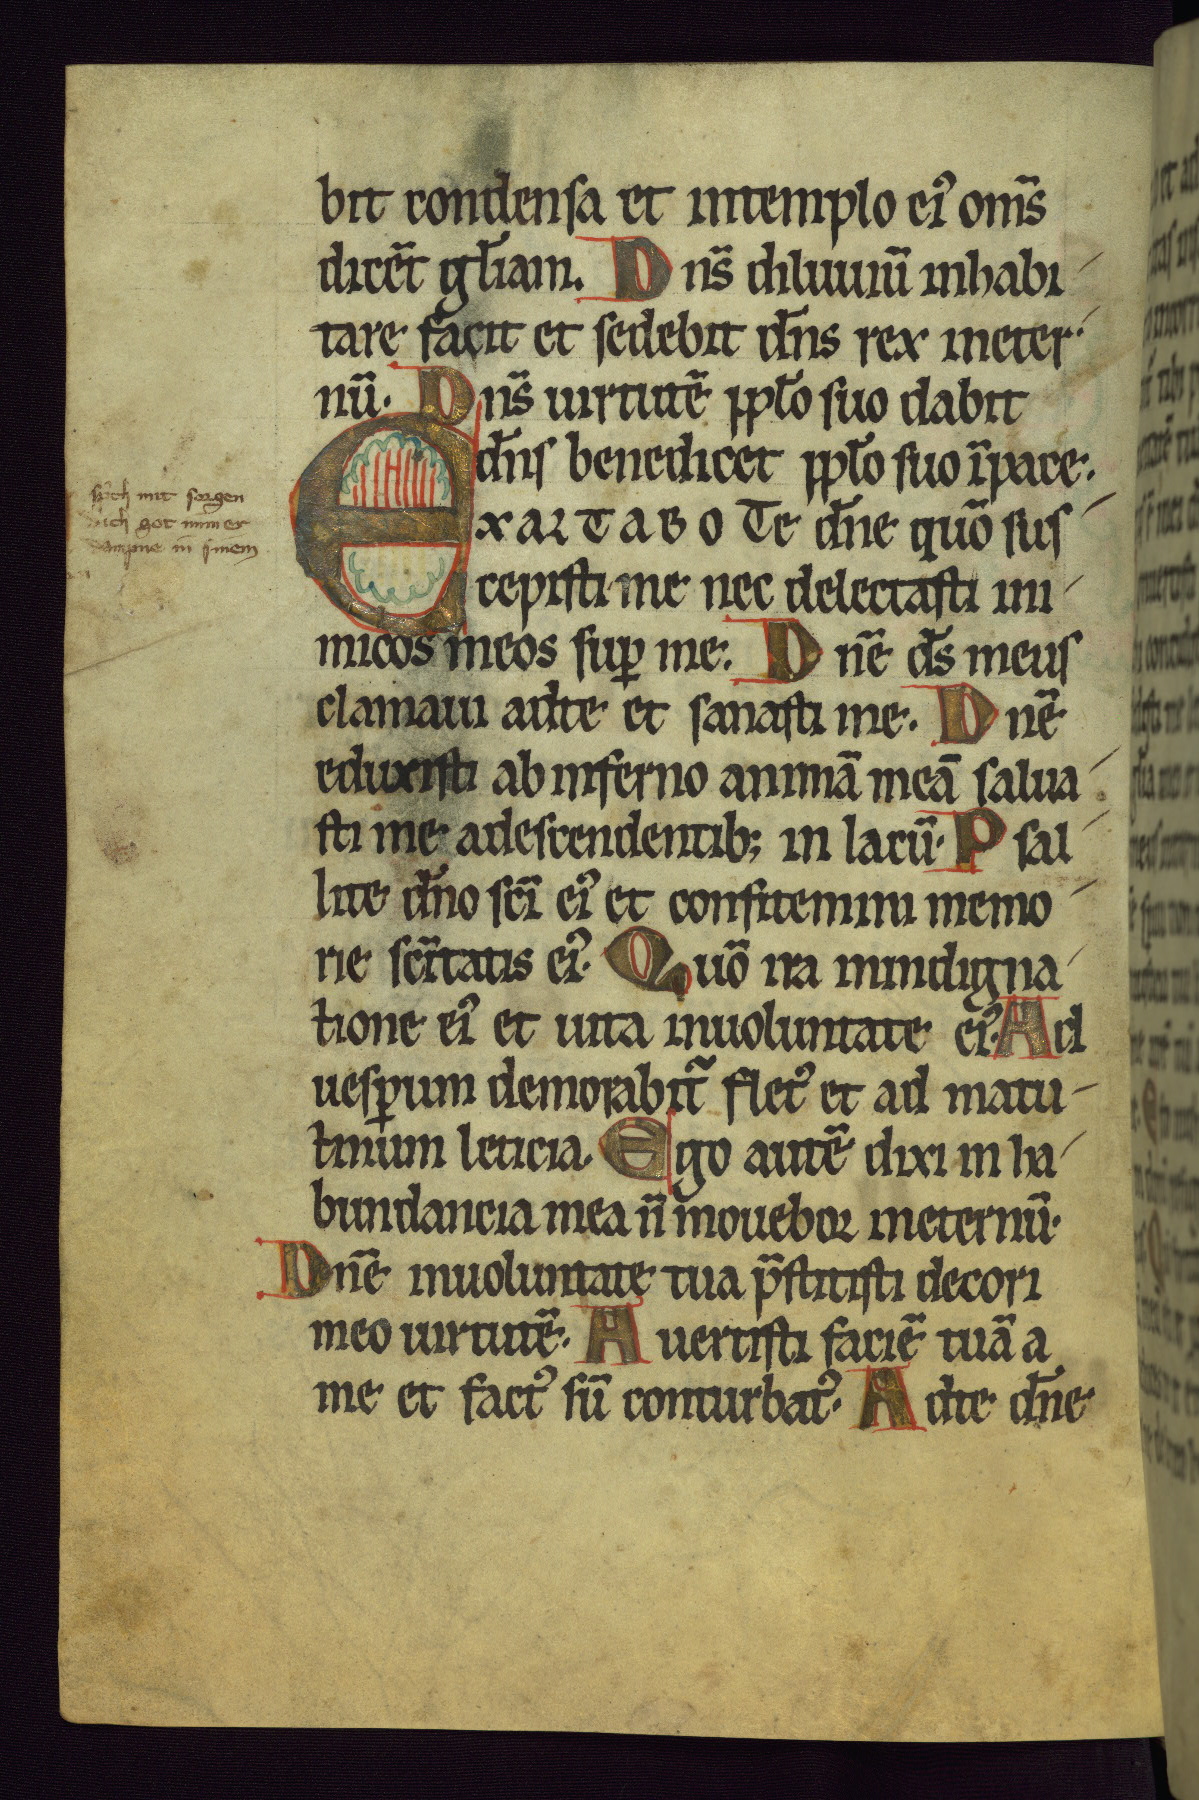 bit condensa et intemplo ei᾽ om̄s
dicēt gl̄iam. D ns̄ diluuiū inhabi
tare facit et sedebit dn̄s rex ineter
nū. D ns̄ uirtutē ppl̄o suo dabit
dn̄s benedicet ppl̄o suo ī pace.
EXALTABO Te dn̄e quō sus
cepisti me nec delectasti ini
micos meos suꝑ me. D nē ds̄ meus
clamaui adte et sanasti me. D nē
eduxisti ab inferno animā meā salua
sti me adescendentib; in lacū. P sal
lite dn̄o sc̄i ei᾽ et confitemini memo
rie sc̄itatis ei᾽. Quō ira inindigna
tione ei᾽ et uita inuoluntate ei᾽. Ad
uesꝑum demorabit᷑ flet᾽ et ad matu
tinum leticia. Ego autē dixi in ha
bundancia mea n̄ mouebor ineternū.
Dnē inuoluntate tua p̄stitisti decori
meo uirtutē. A uertisti faciē tuā a
me et fact᾽ sū conturbat᾽. A dte dn̄e
mit sorgen
got nimmer